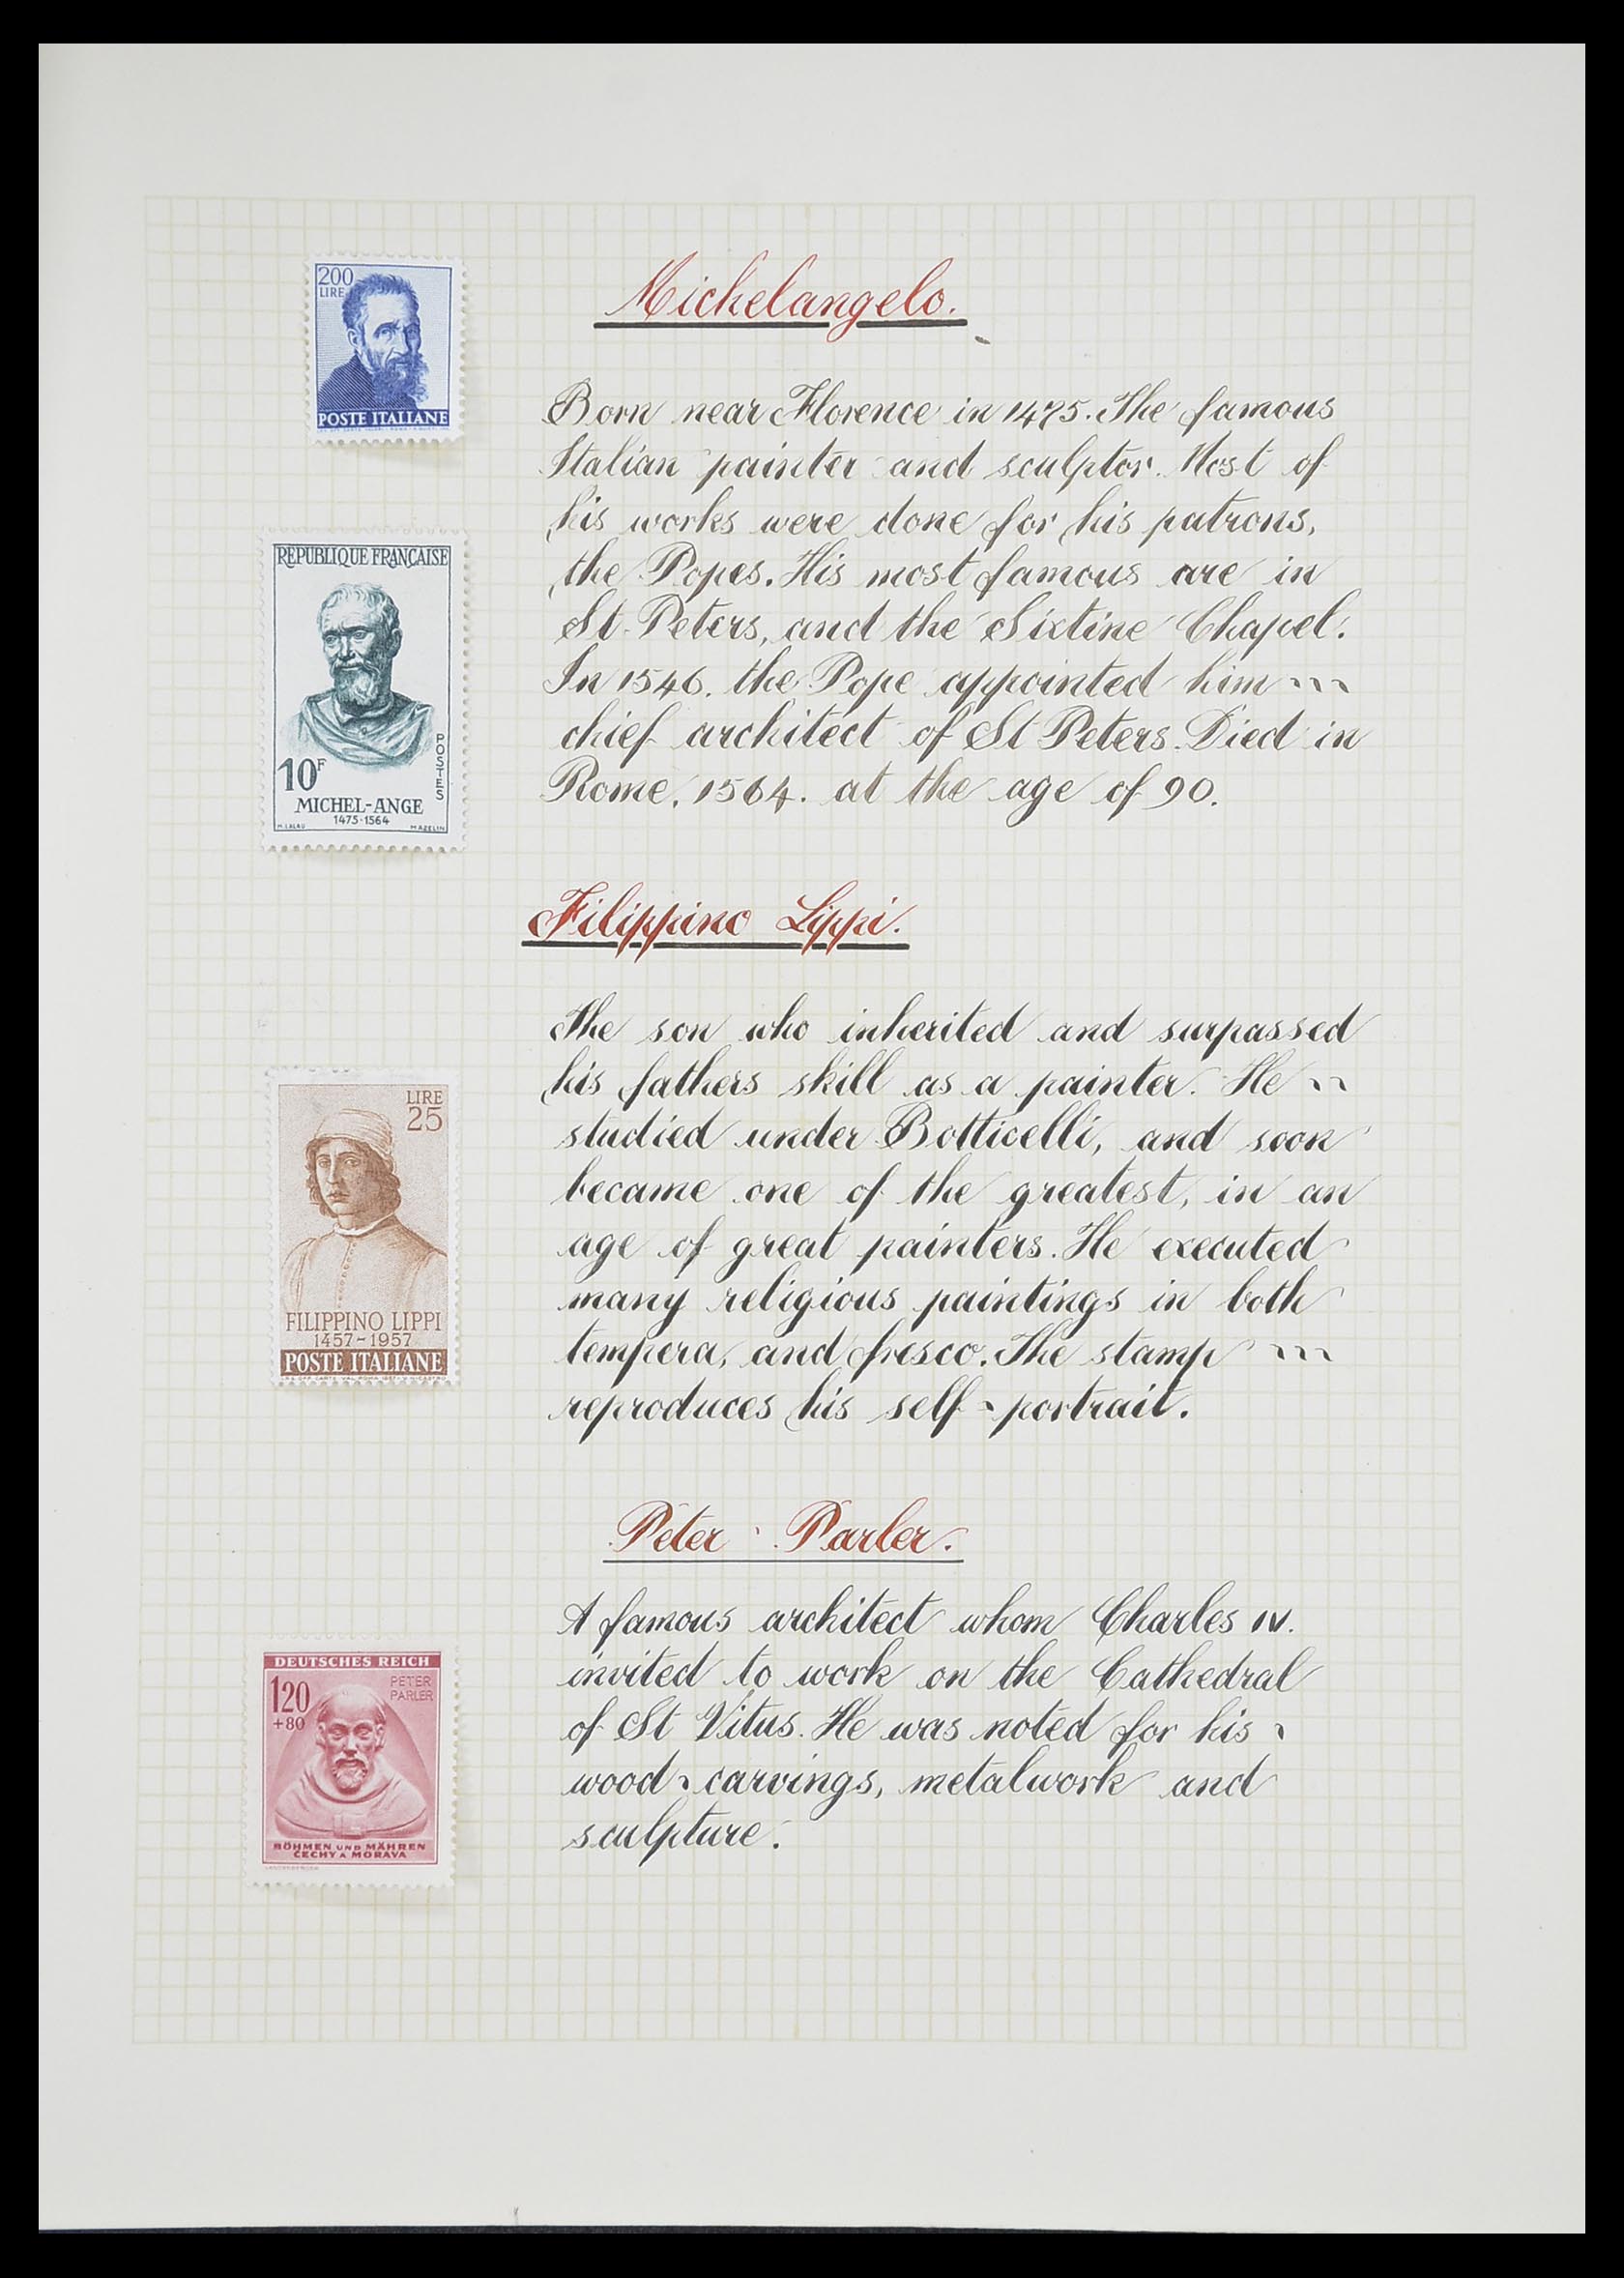 200
LIRE
POSTE ITALIANE
Michelangelo.
Born near Florence in 1475. The famous
Italian painter and sculptor. Most of
his works were done for his patrons,
the Popes. His most famous are in
St. Peters, and the Sixtine Chapel.
In 1546. the Pope appointed him
chief architect of St Peters. Died in
Rome, 1564. at the age of 90.
REPUBLIQUE FRANÇAISE
POSTES
10F
MICHEL-ANGE
1475-1564
H. LALAU
MAZELIN
Filippino Lippi.
The son who inherited and surpassed
his fathers skill as a painter. He
studied under Botticelli, and soon
became one of the greatest, in an
age of great painters. He executed
many religious paintings in both
tempera, and fresco. The stamp
reproduces his self-portrait.
LIRE
25
FILIPPINO LIPPI
1457-1957
POSTE ITALIANE
Peter Parler.
A famous architect whom Charles IV.
invited to work on the Cathedral
of St Vitus. He was noted for his
wood-carvings, metalwork and
sculpture.
DEUTSCHES REICH
120
+80
PETER
PARLER
BÖHMEN UND MÄHREN
ČECHY A MORAVA